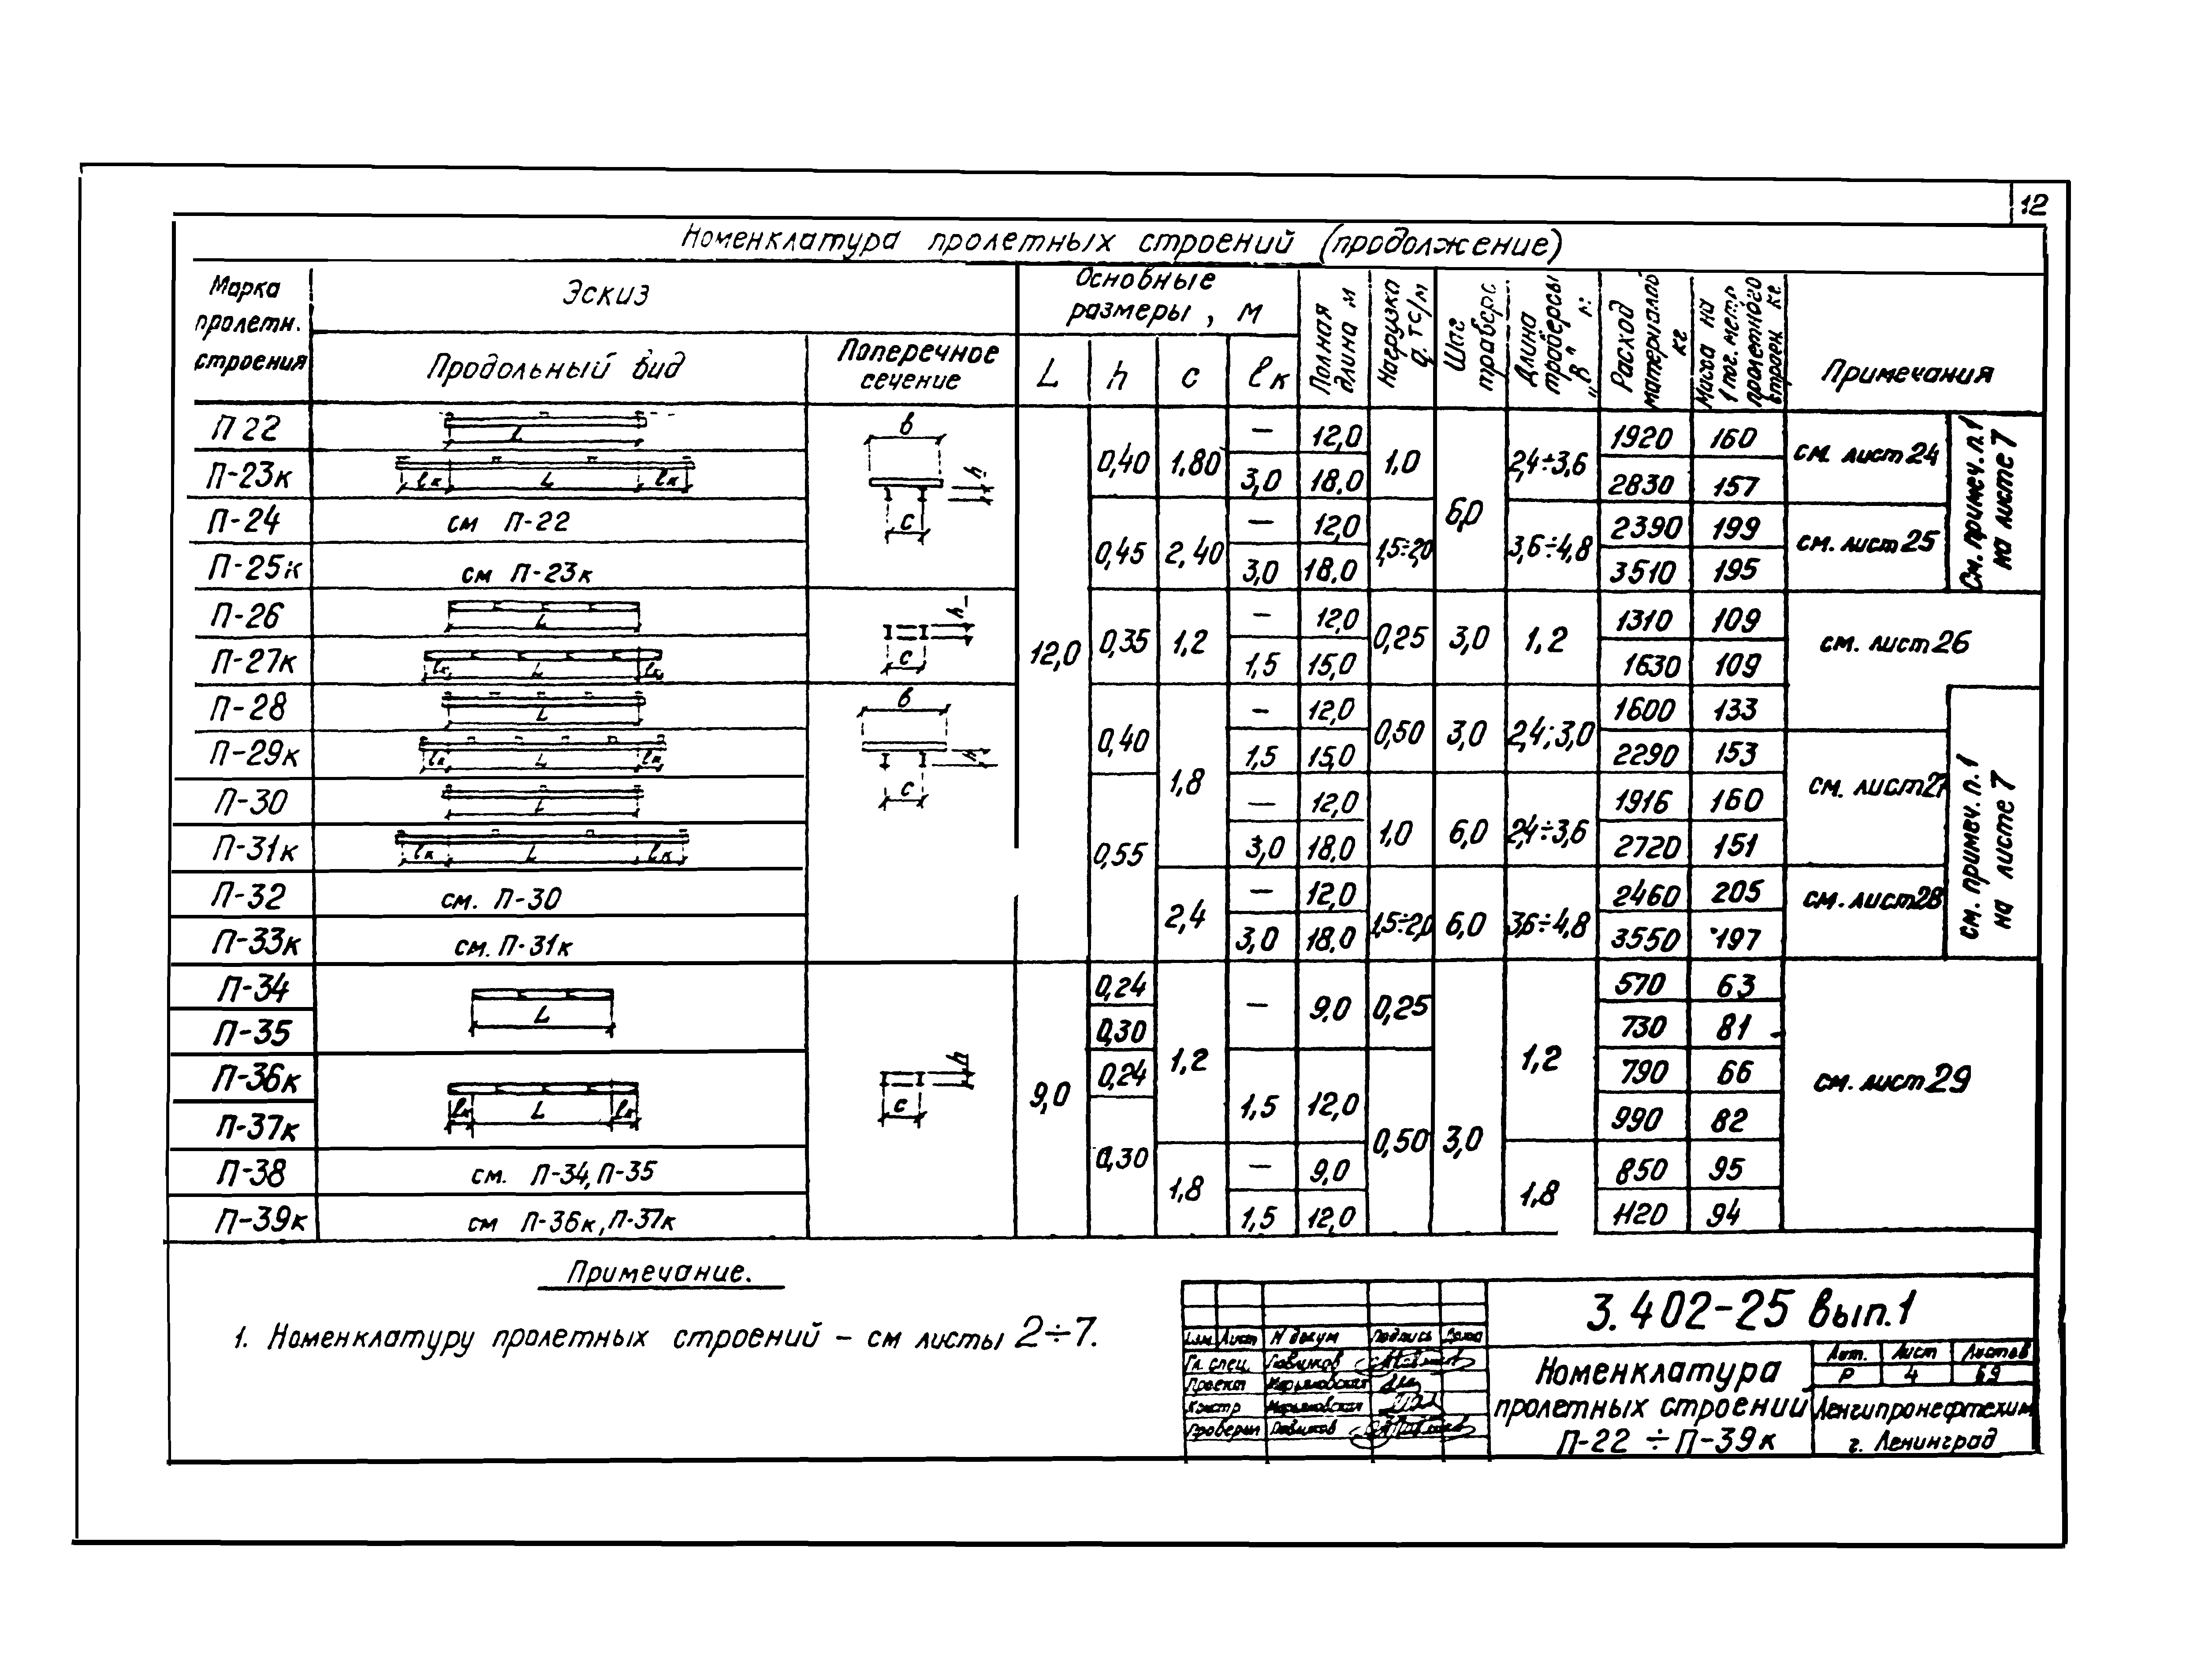 12
Номенклатура пролетных строений (продолжение)
Марка пролетн. строения
Эскиз
Продольный вид
Поперечное сечение
Основные размеры, м
L h c lк
Полная длина м
Нагрузка q. тс/м
Шаг траверс
Длина траверсы "В" м:
Расход материалов кг
Масса на 1 пог. метр пролетного строен. кг
Примечания
П 22 L — 12,0 1920 160
П-23к lк L lк 0,40 1,80 3,0 18.0 1,0 2,4÷3,6 2830 157 см. лист 24
П-24 см П-22 — 12,0 6,0 2390 199
П-25к см П-23к 0,45 2,40 3,0 18.0 1,5÷2,0 3,6÷4,8 3510 195 см. лист 25
в h c
См. примеч. п.1 на листе 7
П-26 L — 12,0 1310 109
П-27к lк L lк 12,0 0,35 1,2 1,5 15,0 0,25 3,0 1,2 1630 109 см. лист 26
h c
П-28 L — 12,0 1600 133
П-29к lк L lк 0,40 1,5 15,0 0,50 3,0 2,4; 3,0 2290 153
в h c
П-30 L 1,8 — 12,0 1916 160 см. лист 27
П-31к lк L lк 0,55 3,0 18.0 1,0 6,0 2,4÷3,6 2720 151
П-32 см. П-30 — 12,0 2460 205 см. лист 28
П-33к см. П-31к 2,4 3,0 18.0 1,5÷2,0 6,0 3,6÷4,8 3550 197
см. примеч. п. 1 на листе 7
П-34 L 0,24 — 9,0 0,25 570 63
П-35 0,30 730 81
П-36к lк L lк 9,0 0,24 1,2 1,2 790 66 см. лист 29
h c
П-37к 1,5 12,0 990 82
П-38 см. П-34, П-35 0,30 — 9,0 0,50 3,0 850 95
П-39к см П-36к, П-37к 1,8 1,5 12,0 1,8 1120 94
Примечание.
1. Номенклатуру пролетных строений – см листы 2÷7.
3.402-25 вып.1
Изм Лист N докум Подпись Дата
Гл. спец.
Проект Марьяновская
Констр Марьяновская
Проверил
Номенклатура
пролетных строений
П-22 ÷ П-39к
Лит. Лист Листов
Р 4 69
Ленгипронефтехим
г. Ленинград